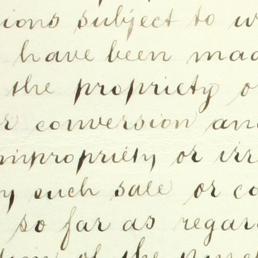 ions subject to
have been mad
the propriety o
r conversion an
impropriety or irr
y such sale or co
so far as regar
of the